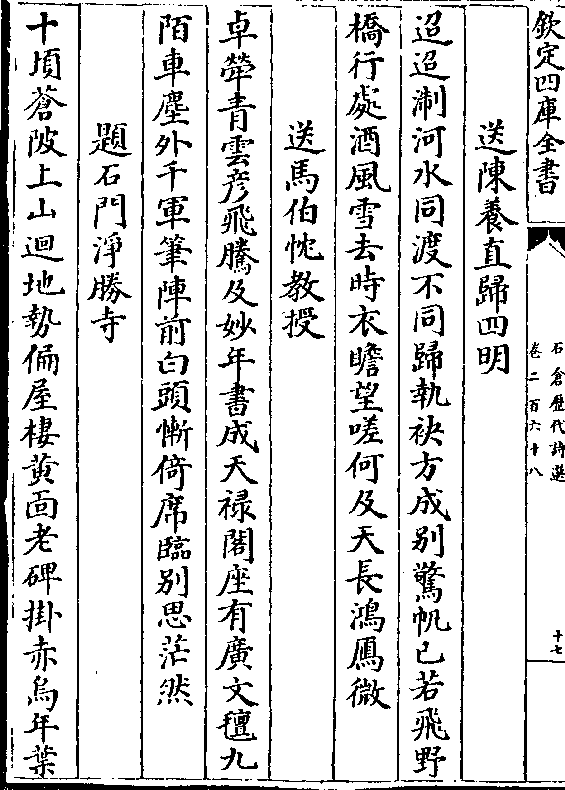 欽定四庫全書
石倉歷代詩選
卷二百六十八
十七
送陳養直歸四明
迢迢淛河水同渡不同歸執袂方成别驚帆已若飛野
橋行處酒風雪去時衣瞻望嗟何及天長鴻鴈微
送馬伯忱教授
卓犖青雲彦飛騰及妙年書成天禄閣座有廣文氊九
陌車塵外千軍筆陣前白頭慚倚席臨别思茫然
題石門淨勝寺
十頃蒼陂上山迴地勢偏屋棲黄面老碑掛赤烏年葉